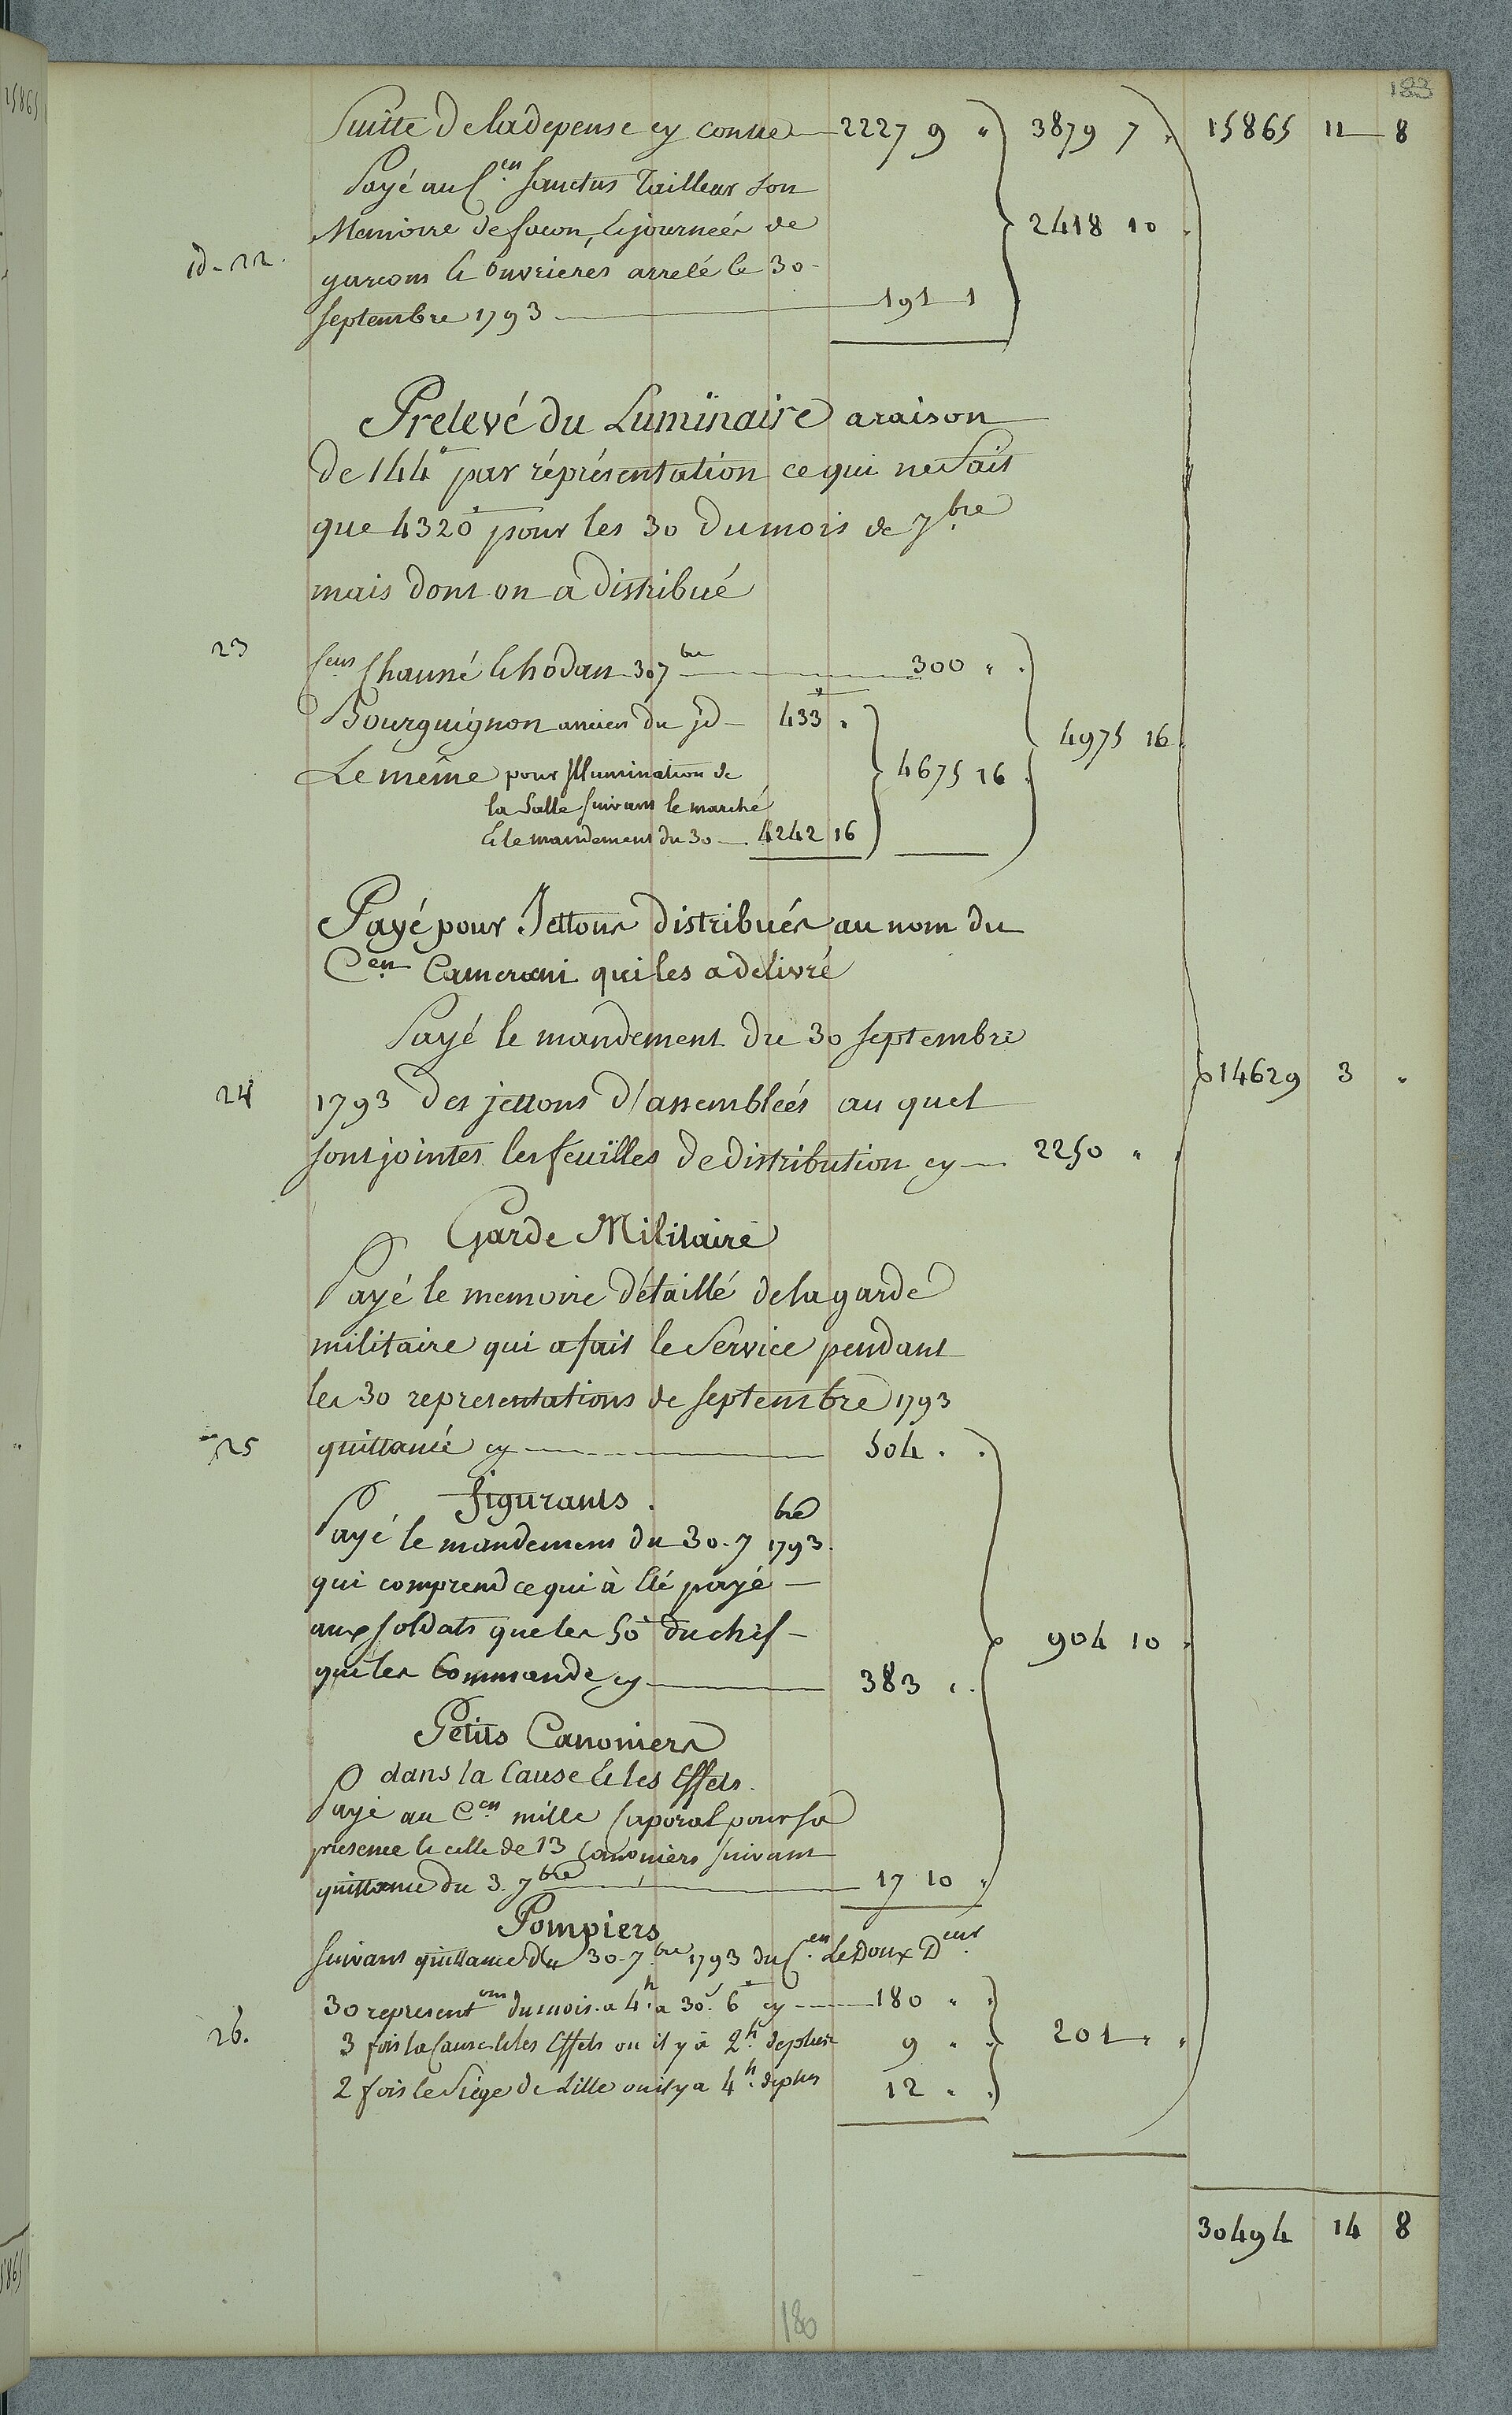 183
Suitte de la depense cy contre 2227 9 " 3879 7 . 15865 11 8
Payé au C.en Sanctus Tailleur son
Memoire de facon, & journeés de 2418 10 .
id. 22. garcons & Ouvrieres arreté le 30
Septembre 1793 191 1
Prelevé du Luminaire araison
de 144# par réprésentation ce qui ne fait
que 4320# pour les 30 du mois de 7.bre
mais dont on a distribué
23 Cens Chauné & hódan 30 7bre 300 " .
Bourguignon ancien du jd 433# .
4975 16 .
Le même pour Illumination de 4675 16 .
la Salle suivant le marché
& le mandement du 30 4242 16
Payé pour Jettons distribués au nom du
C.en Camerani qui les a delivré
Payé le mandement du 30 Septembre
14629 3 "
24 1793 des jettons d'assembleés au quel
sont jointes les feuilles de distribution cy 2250 " .
Garde Militaire
Payé le memoire détaillé de la garde
militaire qui a fait le Service pendant
les 30 representations de Septembre 1793
25 quittancé cy 504 . .
figurants.
Payé le mandement du 30. 7bre 1793.
qui comprend ce qui à été payé
aux soldats que les 50# du chef
904 10 .
qui les Commande cy 383 . .
Petits Canoniers
dans la Cause & les Effets.
Payé au C.en mille Caporal pour sa
presence & celle de 13 Canoniers suivant
quittance du 3. 7bre 17 10 "
Pompiers
Suivant quittance du 30. 7.bre 1793 du C.en Le Doux D.eur
30 represent.ons du mois. a 4.h a 30.s 6# cy 180 " "
26. 3 fois la Cause & les Effets ou il y à 2.h de plus 9 " " 201 " "
2 fois le Siege de Lille ou il y a 4.h de plus 12 " "
30494 14 8
180